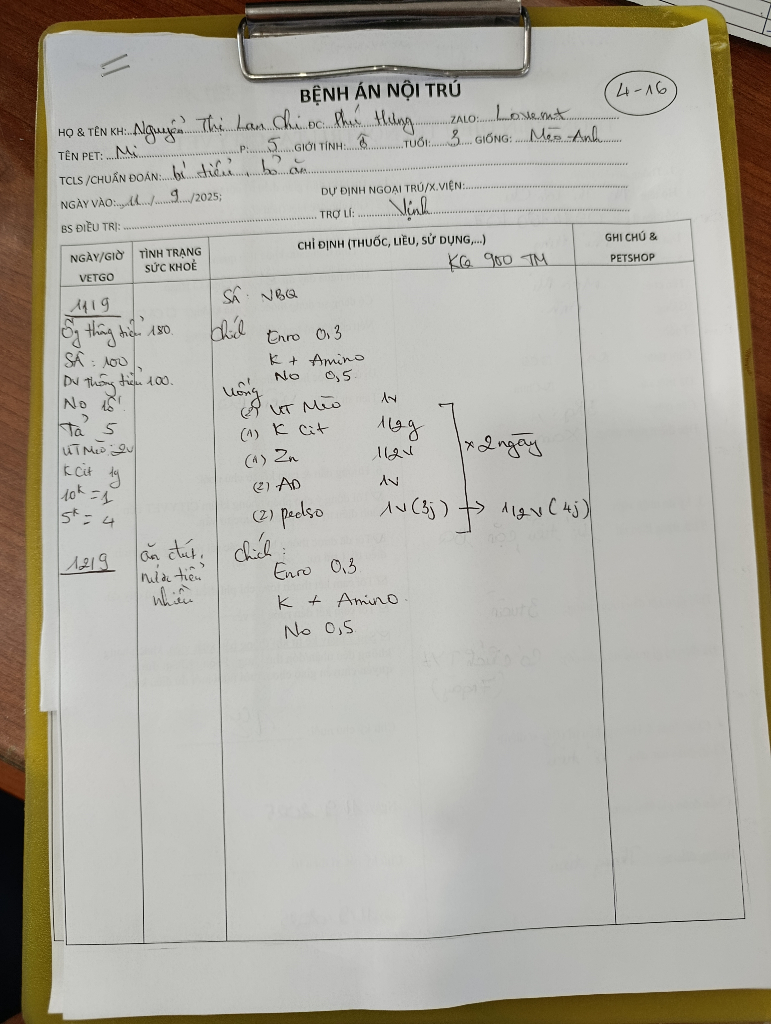 BỆNH ÁN NỘI TRÚ
4-16
HỌ & TÊN KH: Nguyễn Thị Lan Chi ĐC: Phú Hưng ZALO: Lovemt
TÊN PET: Mi P: 5 GIỚI TÍNH: TUỔI: 3 GIỐNG: Mèo Anh
TCLS /CHUẨN ĐOÁN: bí tiểu, bỏ ăn
NGÀY VÀO: 11 / 9 /2025; DỰ ĐỊNH NGOẠI TRÚ/X.VIỆN:
BS ĐIỀU TRỊ: TRỢ LÍ: Vịnh
NGÀY/GIỜ VETGO
TÌNH TRẠNG SỨC KHOẺ
CHỈ ĐỊNH (THUỐC, LIỀU, SỬ DỤNG,...)
KQ 900 TM
GHI CHÚ & PETSHOP
11/9
Ống thông tiểu 180.
SÂ: 100
DV thông tiểu 100.
No
Tả 5
UT Mèo: 2v
K Cit 1g
10k = 1
5k = 4
SÂ: NBQ
Chích Enro 0,3
K + Amino
No 0,5
Uống
(2) UT Mèo 1v
(1) K Cit 1/2g
(1) Zn 1/2v
(2) AD 1v
(2) pedso 1v (3j) → 1/2v (4j)
x 2 ngày
12/9
ăn chút,
nước tiểu
nhiều
Chích:
Enro 0,3
K + Amino.
No 0,5